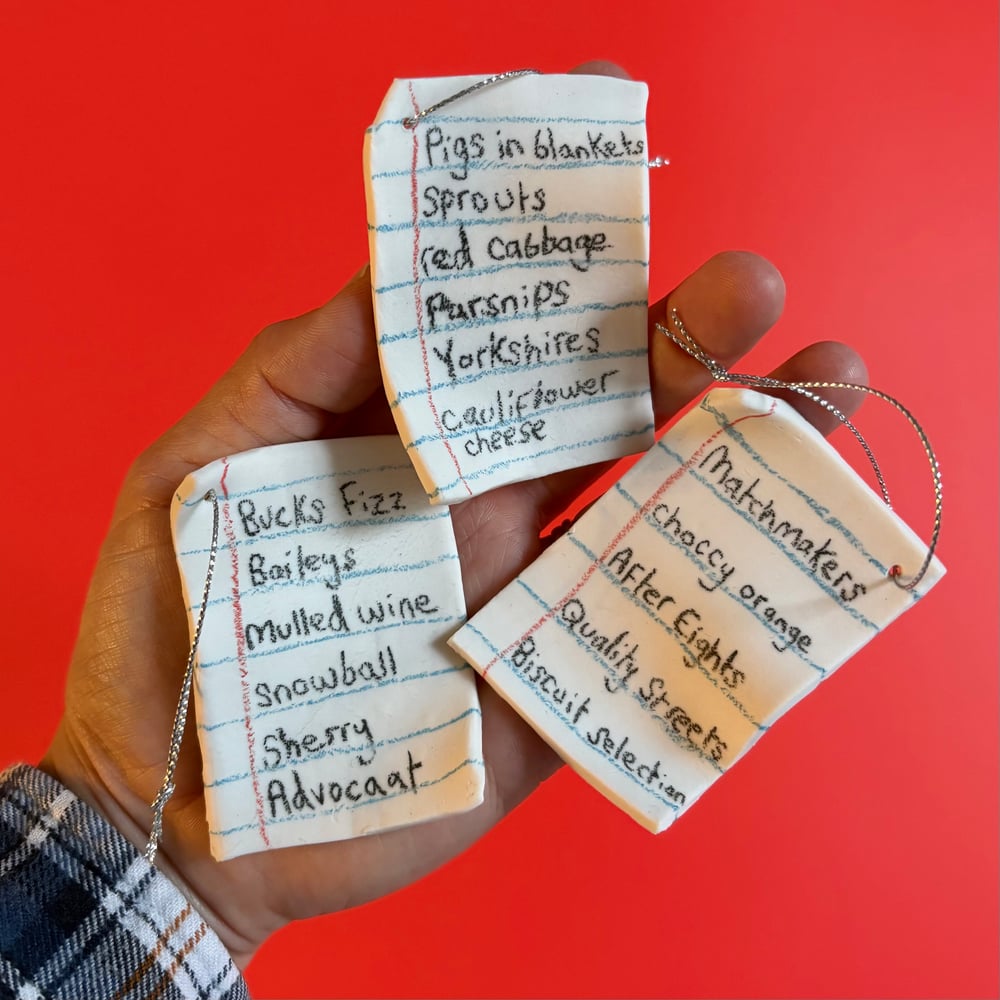 Pigs in blankets
sprouts
red cabbage
Parsnips
Yorkshires
cauliflower
cheese
Bucks Fizz
Baileys
mulled wine
snowball
Sherry
Advocaat
Matchmakers
choccy orange
After Eights
Quality Streets
Biscuit selection